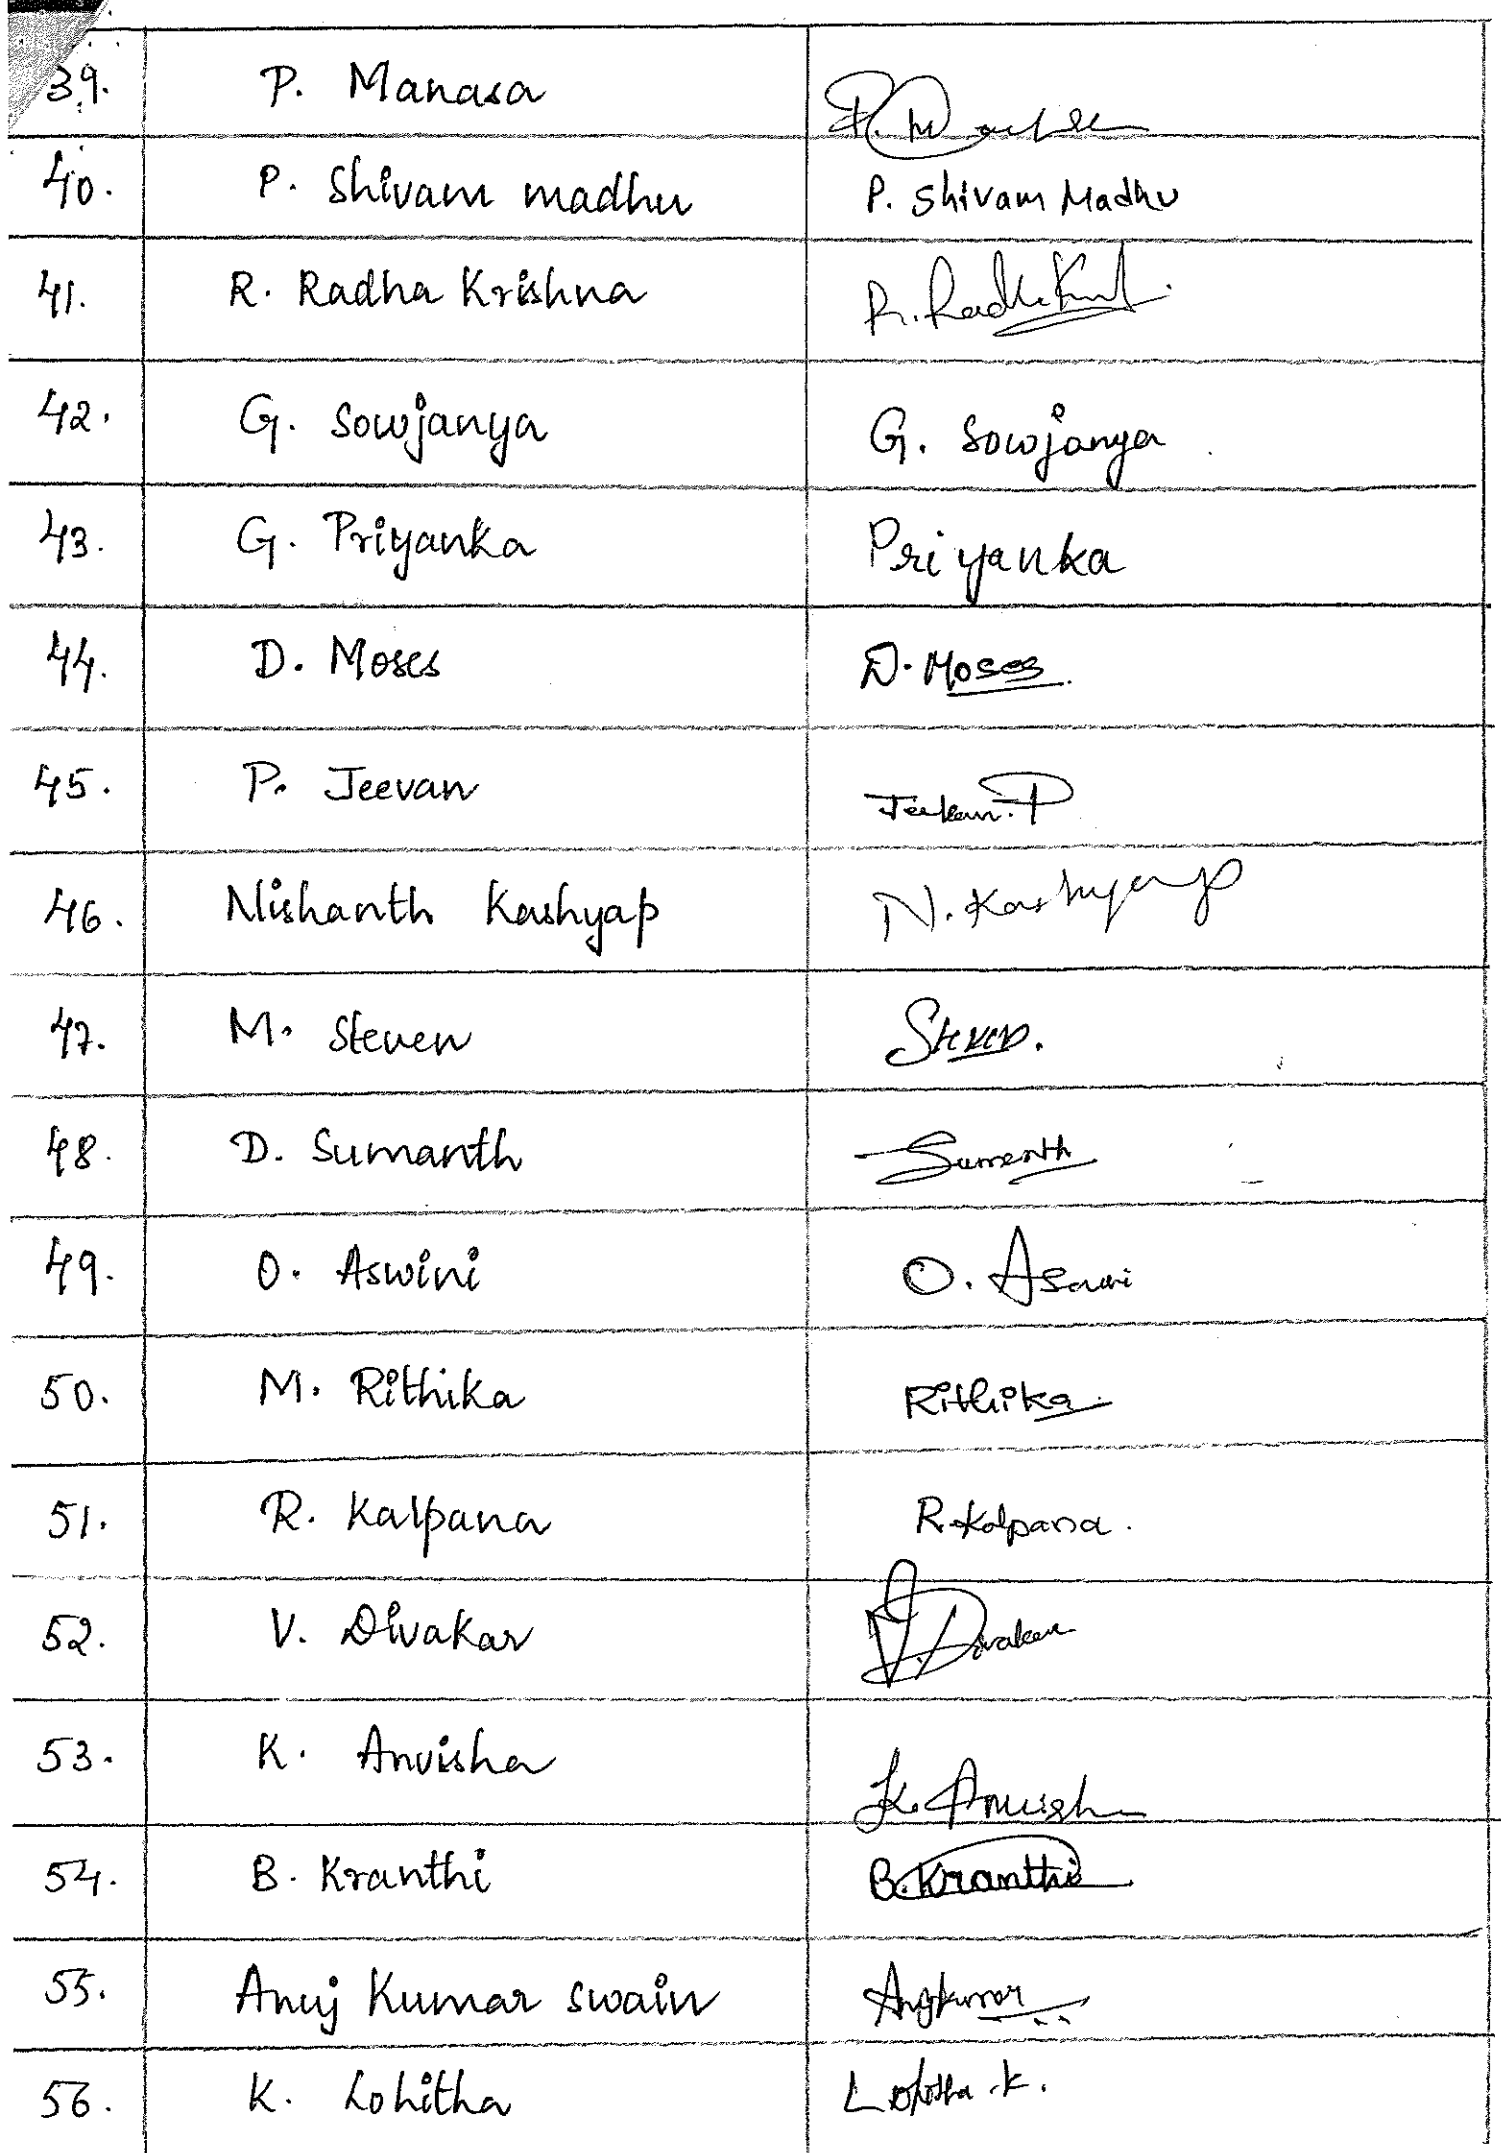 39. P. Manasa
40. P. Shivam madhu P. Shivam Madhu
41. R. Radha Krishna R. Radh
42. G. Sowjanya G. Sowjanya
43. G. Priyanka Priyanka
44. D. Moses D. Moses
45. P. Jeevan Jeevan. P
46. Nishanth Kashyap N. Kashyap
47. M. Steven Steven.
48. D. Sumanth Sumanth
49. O. Aswini O. Aswini
50. M. Rithika Rithika
51. R. Kalpana R. Kalpana.
52. V. Divakar V. Divakar
53. K. Anvisha K. Anvish
54. B. Kranthi B. Kranthi
55. Anuj Kumar Swain Anujkumar
56. K. Lohitha Lohitha .K.